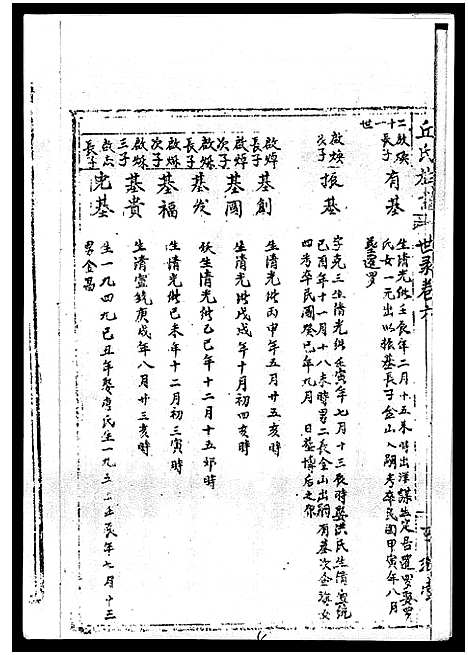 丘氏族譜 世录卷六
二十一世
啟煥長子 有基 生清光緒壬辰年二月十五未時出洋謀生定居暹罗娶罗
氏女一元出以振基長子金山入嗣考卒民國甲寅年八月
墓暹罗
啟煥次子 振基 字克三生清光緒壬寅年七月十三辰時娶洪氏生清宣統
己酉年十一月十八未時男二長金山出嗣有基次金 女
四考卒民國癸巳年九月 日墓
啟焯長子 基創 生清光緒丙申年五月廿五亥時
啟焯次子 基國 生清光緒戊戌年十月初四亥時
啟 長子 基发 生清光緒乙巳年十二月十五卯時
啟 次子 基福 生清光緒己未年十二月初三寅時
啟 三子 基貴 生清宣統庚戌年八月廿三亥時
啟志長子 基 生一九四九己丑年娶廖氏生一九五二壬辰年七月十三
男金昌